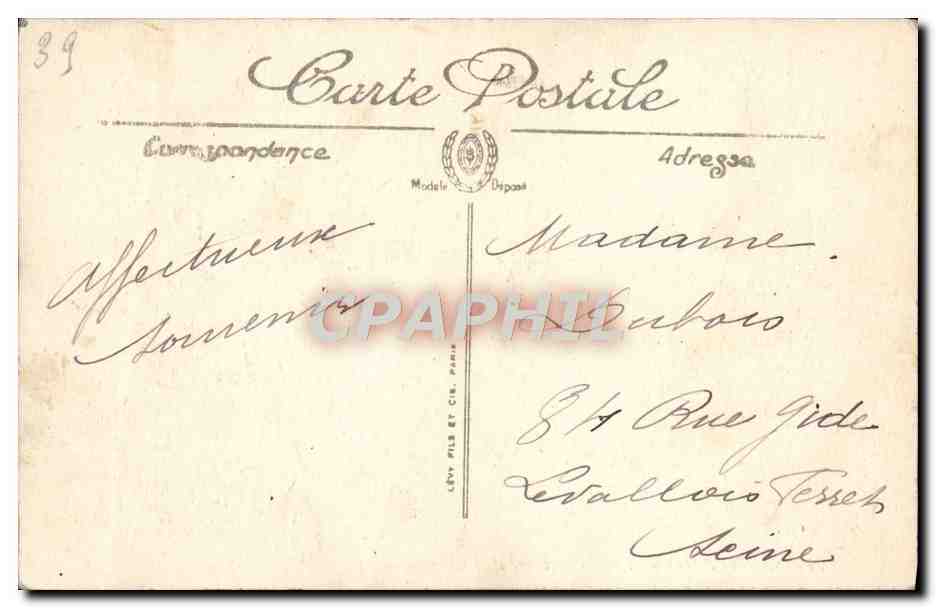 39
Carte Postale
Correspondance
Adresse
Modèle Déposé
Affectueux
souvenir
CPAPHIL
LÉVY FILS ET CIE, PARIS
Madame
Dubois
84 Rue Gide
Levallois Perret
Seine